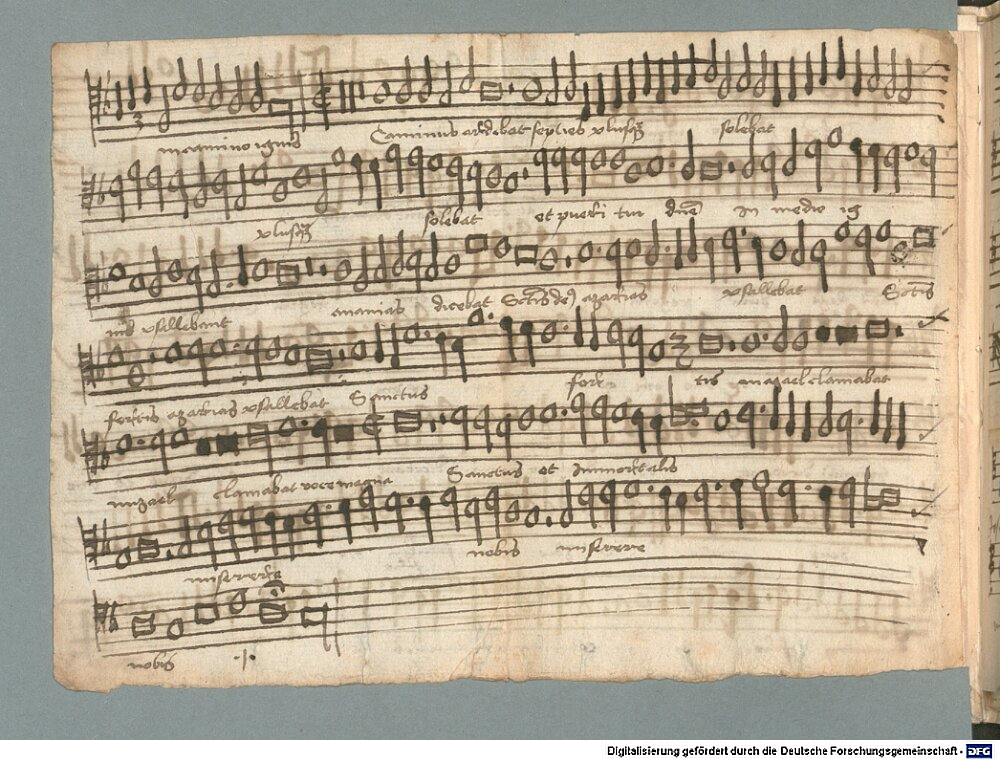 in camino ignis Caminus ardebat septies plusq̃ solebat
plusq̃ solebat et pueri tui dñe in medio ig
nis psallebant ananias dicebat Sctūs azarias psallebat Sctūs
fortis azarias psallebat Sanctus fort tis mizael clamabat
mizael clamabat voce magna Sanctus et Immortalis
miserere nobis miserere
nobis
Digitalisierung gefördert durch die Deutsche Forschungsgemeinschaft - DFG